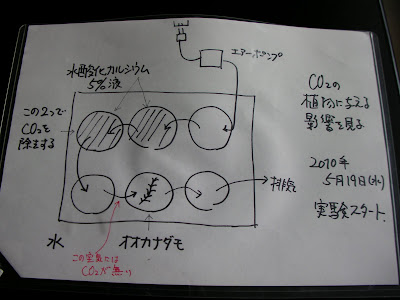 エアーポンプ
水酸化カルシウム
5%液
この2つで
CO2を
除去する
CO2の
植物に与える
影響を見る
2010年
5月19日(水)
実験スタート.
排気
水
オオカナダモ
この空気には
CO2が無い